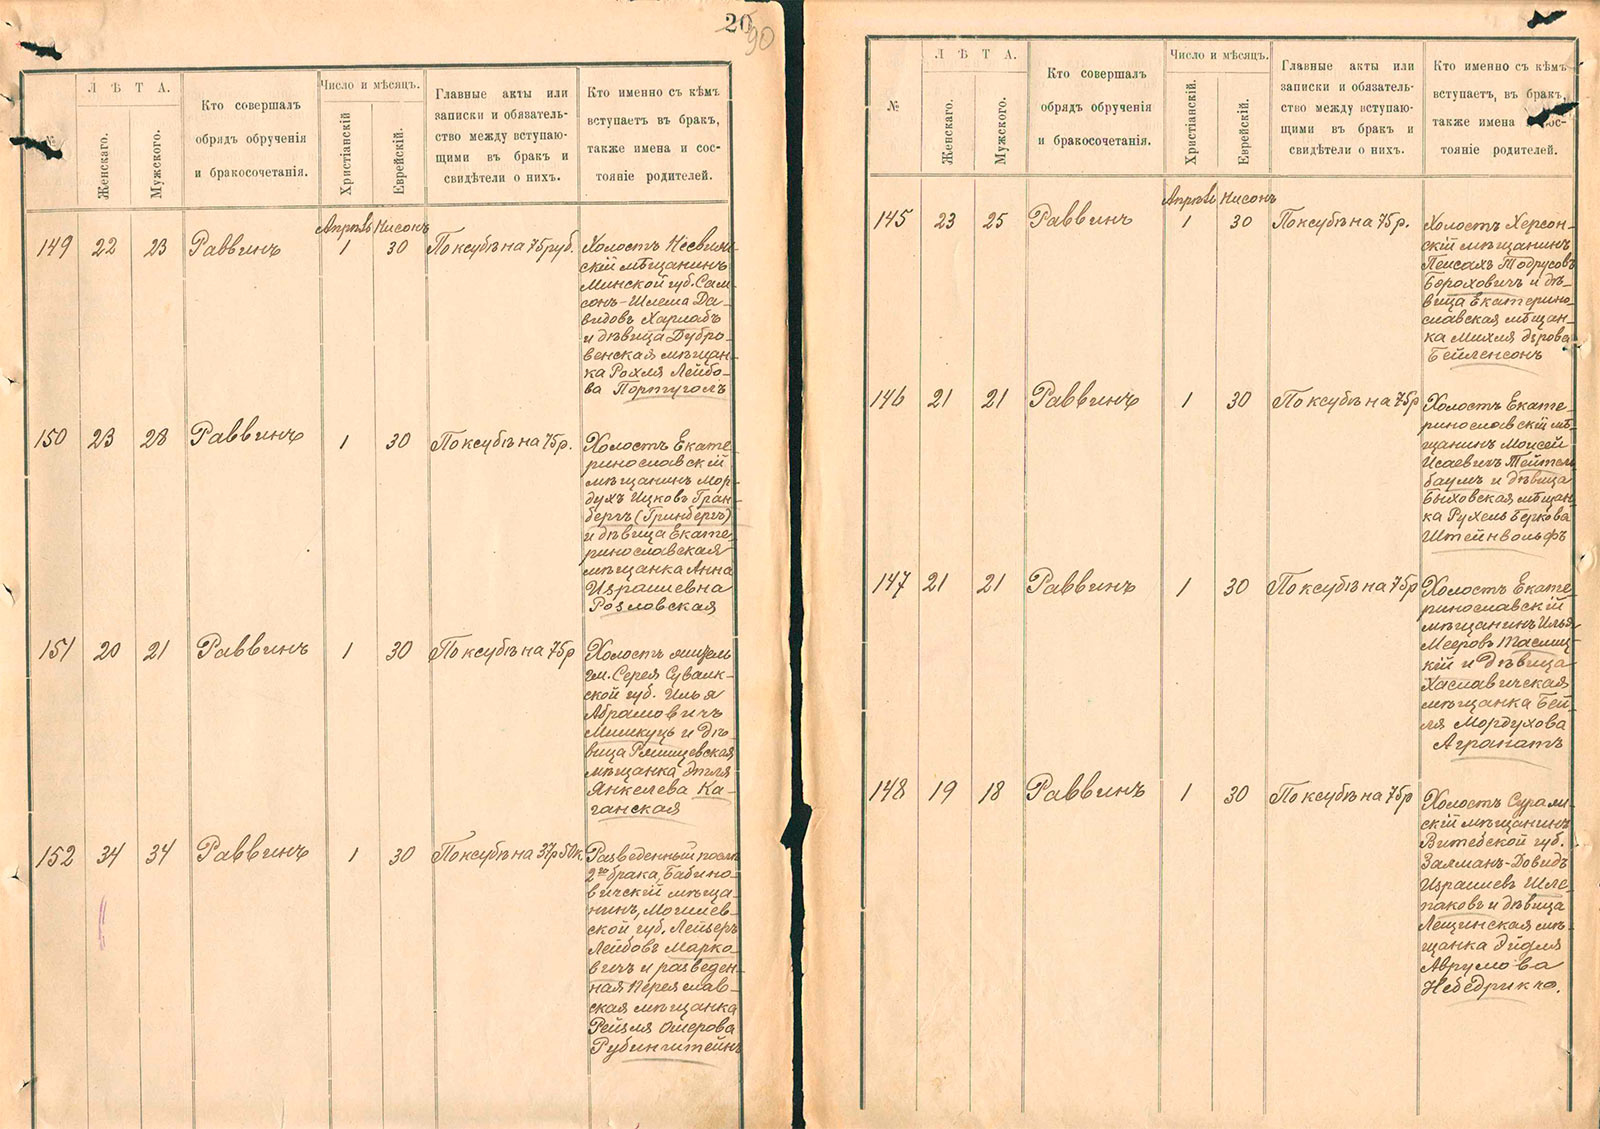 20
90
№
Л Ѣ Т А.
Женскаго.
Мужского.
Кто совершалъ
обрядъ обрученія
и бракосочетанія.
Число и мѣсяцъ.
Христіанскій
Еврейскій.
Главные акты или
записки и обязатель-
ство между вступаю-
щими въ бракъ и
свидѣтели о нихъ.
Кто именно съ кѣмъ
вступаетъ въ бракъ,
также имена и сос-
тояніе родителей.
Апрѣль Нисонъ
149 22 23 Раввинъ 1 30 По ксубѣ на 75 руб.
Холостъ Несвиж-
скій мѣщанинъ
Минской губ. Сам-
сонъ-Шлема Да-
видовъ Харлабъ
и дѣвица Дубро-
венская мѣщан-
ка Рохля Лейбо-
ва Португолъ
150 23 28 Раввинъ 1 30 По ксубѣ на 75 р.
Холостъ Екате-
ринославскій
мѣщанинъ Мор-
духъ Ицковъ Гран-
бергъ (Гринбергъ)
и дѣвица Екате-
ринославская
мѣщанка Анна
Израилевна
Розловская
151 20 21 Раввинъ 1 30 По ксубѣ на 75 р
Холостъ житель
гм. Серея Сувалк-
ской губ. Илья
Абрамовичъ
Миликуцъ и дѣ-
вица
мѣщанка Этля
Янкелева Ка-
ганская
152 34 34 Раввинъ 1 30 По ксубѣ на 37 р 50 к.
Разведенный послѣ
2го брака, Бабино-
вичскій мѣща-
нинъ, Могилев-
ской губ. Лейзеръ
Лейбовъ Марко-
вичъ и разведен-
ная Переяслав-
ская мѣщанка
Рейзля Ошерова
Рубинштейнъ
№
Л Ѣ Т А.
Женскаго.
Мужского.
Кто совершалъ
обрядъ обрученія
и бракосочетанія.
Число и мѣсяцъ.
Христіанскій.
Еврейскій.
Главные акты или
записки и обязатель-
ство между вступаю-
щими въ бракъ и
свидѣтели о нихъ.
Кто именно съ кѣмъ
вступаетъ, въ бракъ,
также имена и сос-
тояніе родителей.
Апрѣль Нисонъ
145 23 25 Раввинъ 1 30 По ксубѣ на 75 р.
Холостъ Херсон-
скій мѣщанинъ
Пейсахъ Тодрусовъ
Бороховичъ и дѣ-
вица Екатерино-
славская мѣщан-
ка Михля
Бейленсонъ
146 21 21 Раввинъ 1 30 По ксубѣ на 75 р
Холостъ Екате-
ринославскій мѣ-
щанинъ Моисей
Исаевичъ Тейтель-
баумъ и дѣвица
Быховская мѣщан-
ка Рухель Беркова
Штейнвольфъ
147 21 21 Раввинъ 1 30 По ксубѣ на 75 р
Холостъ Екате-
ринославскій
мѣщанинъ Илья
Мееровъ Таслиц-
кій и дѣвица
Хаславичская
мѣщанка Бей-
ля Мордухова
Агранатъ
148 19 18 Раввинъ 1 30 По ксубѣ на 75 р
Холостъ
скій мѣщанинъ
Витебской губ.
Залманъ-Довидъ
Израилевъ Шле-
паковъ и дѣвица
Лещинская мѣ-
щанка Эйдля
Аврумова